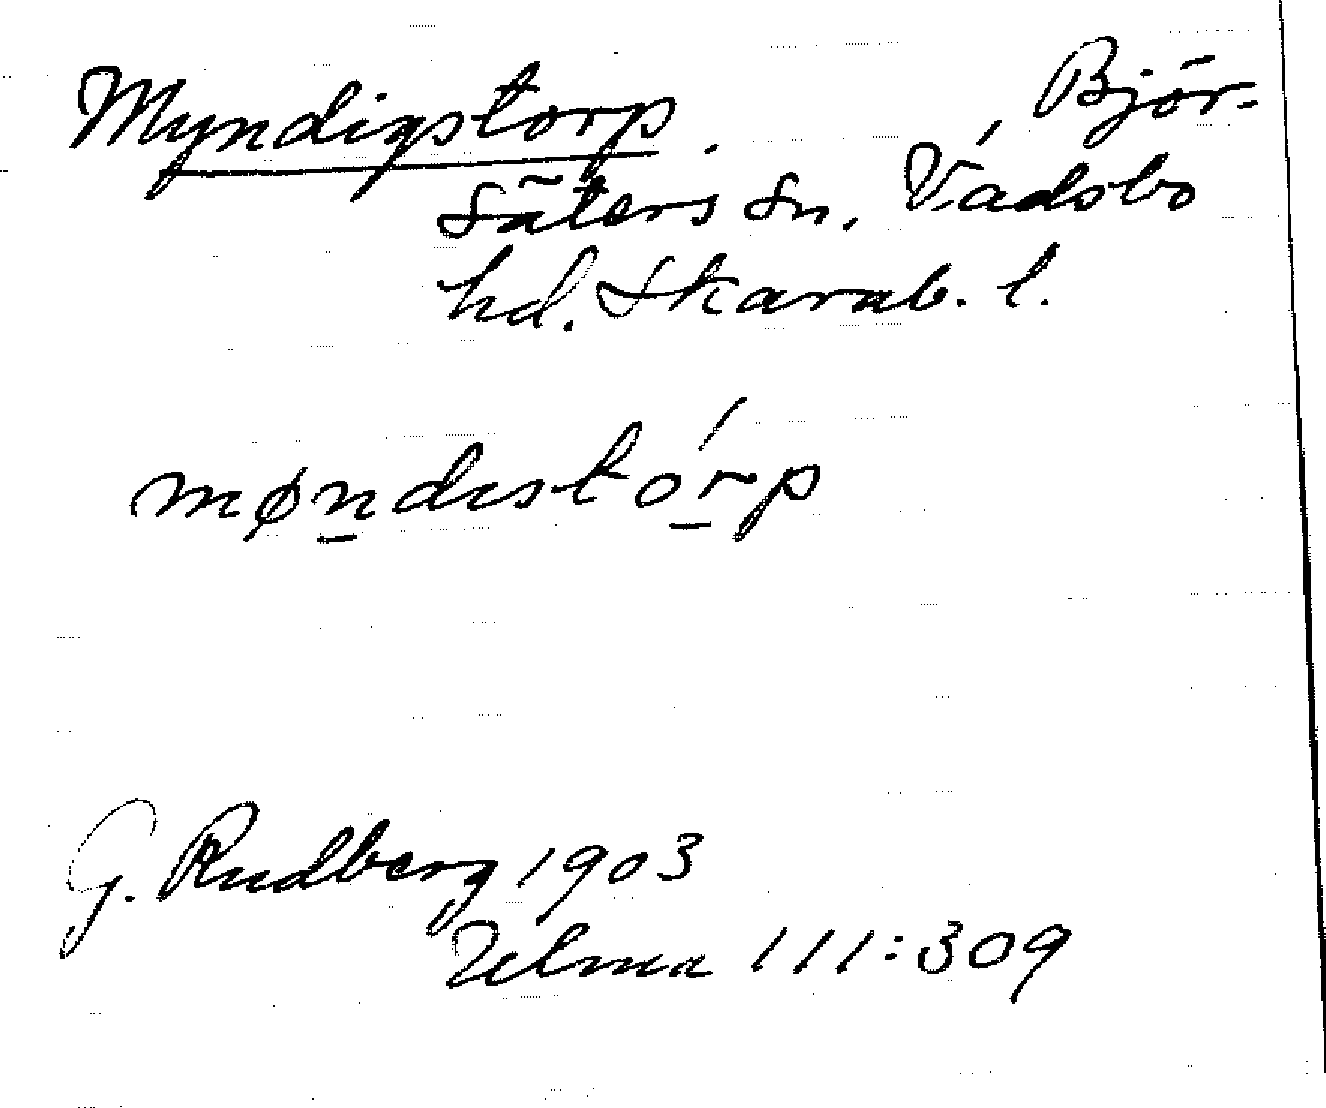 Myndigstorp. Björ-
säters sn, Vadsbo
hd. Skarab. l.
møndıstórp
G. Rudberg 1903
Ulma 111:309